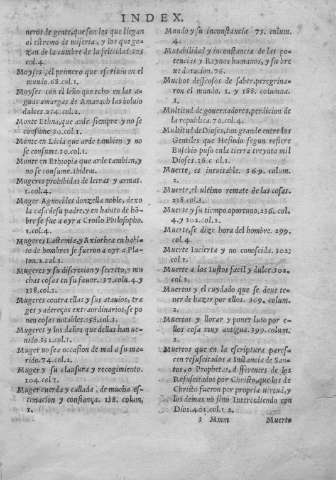 INDEX.
neros de gente, que son los que llegan
al estremo de miseria, y los que gozan
de la cumbre de la felicidad. 205
col. 4.
Moyses, el primero que escriuio en el
mundo. 68. col. 1.
Moyses con el leño que echo en las aguas
amargas de Amarath las boluio
dulces. 274. col. 2.
Monte Ethna, que arde siempre y no se
consume. 20. col. 1.
Monte en Licia que arde tambien y no
se consume. 20. col. 1.
Monte en Ethiopia que arde tambien, y
no se consume. Ibidem.
Mugeres prohibidas de letras y armas.
1. col. 4.
Muger Agnodice donzella noble, dexo
la casa de su padre, y en habito de hombre
se fue a oyr a Crotilo Philosopho.
1. col. 4.
Mugeres Lasthenia, y Axiothea en habito
de hombres se fueron a oyr a Platon.
2. col. 1.
Mugeres y su discrecion y secreto, y muchas
cosas en su fauor. 37. col. 4. y
238. col. 1.
Mugeres contra ellas y sus atauios, trages
y adereços extraordinarios se ponen
cosas notables. 158. col. 1.
Mugeres y los daños que dellas han uenido.
251. col. 1.
Muger no sea ocasion de mal a su marido.
74. col. 1.
Muger y su clausura y recogimiento.
104. col. 1.
Muger cuerda y callada, de mucha estimacion
y confiança. 188. colum.
1.
Mundo y su inconstancia 75. colum.
4.
Mutabilidad y inconstancia de las potencias
y Reynos humanos, y su breue
duracion. 76.
Muchos desseosos de saber, peregrinaron
el mundo. 1. y 188. columna.
1.
Multitud de gouernadores, perdicion de
la republica. 70. col. 4.
Multitud de Dioses, tan grande entre los
Gentiles, que Hesiodo segun refiere
Eusebio puso en la tierra treynta mil
Dioses. 26. c ol. 1.
Muerte, es ineuitable. 369. colum.
2.
Muerte, el ultimo remate de las cosas.
238. col. 1.
Muerte y su tiempo oportuno. 236. col.
4. y 1. col. 1.
Muerte, se dize hora del hombre. 299.
col. 4.
Muerte incierta y no conoscida. 302
col. 1.
Muerte a los Iustos facil y dulce. 302.
col. 1.
Muertos y el cuydado que se deue tener
de hazer por ellos. 369. colum.
2.
Muertos y llorar y poner luto por ellos
cosa muy antigua. 299. colum.
2.
Muertos que en la escriptura parescen
resuscitados a Instancia de Santos,
o Prophetas, d ifferences de los
Resuscitados por Christo, y que los de
Christo fueron por propria uirtud, y
los demas no sino Intercediendo con
Dios. 401. col. 1. 2.
Muerto